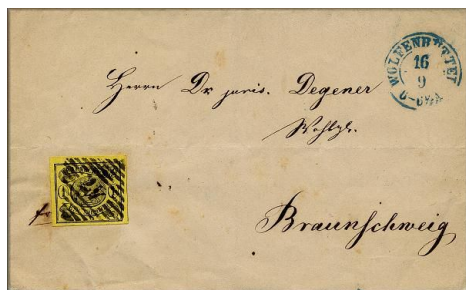 WOLFENBÜTTEL
16
9
6-6½A
Herrn Dr juris. Degener
Wohlgb.
fr
Braunschweig